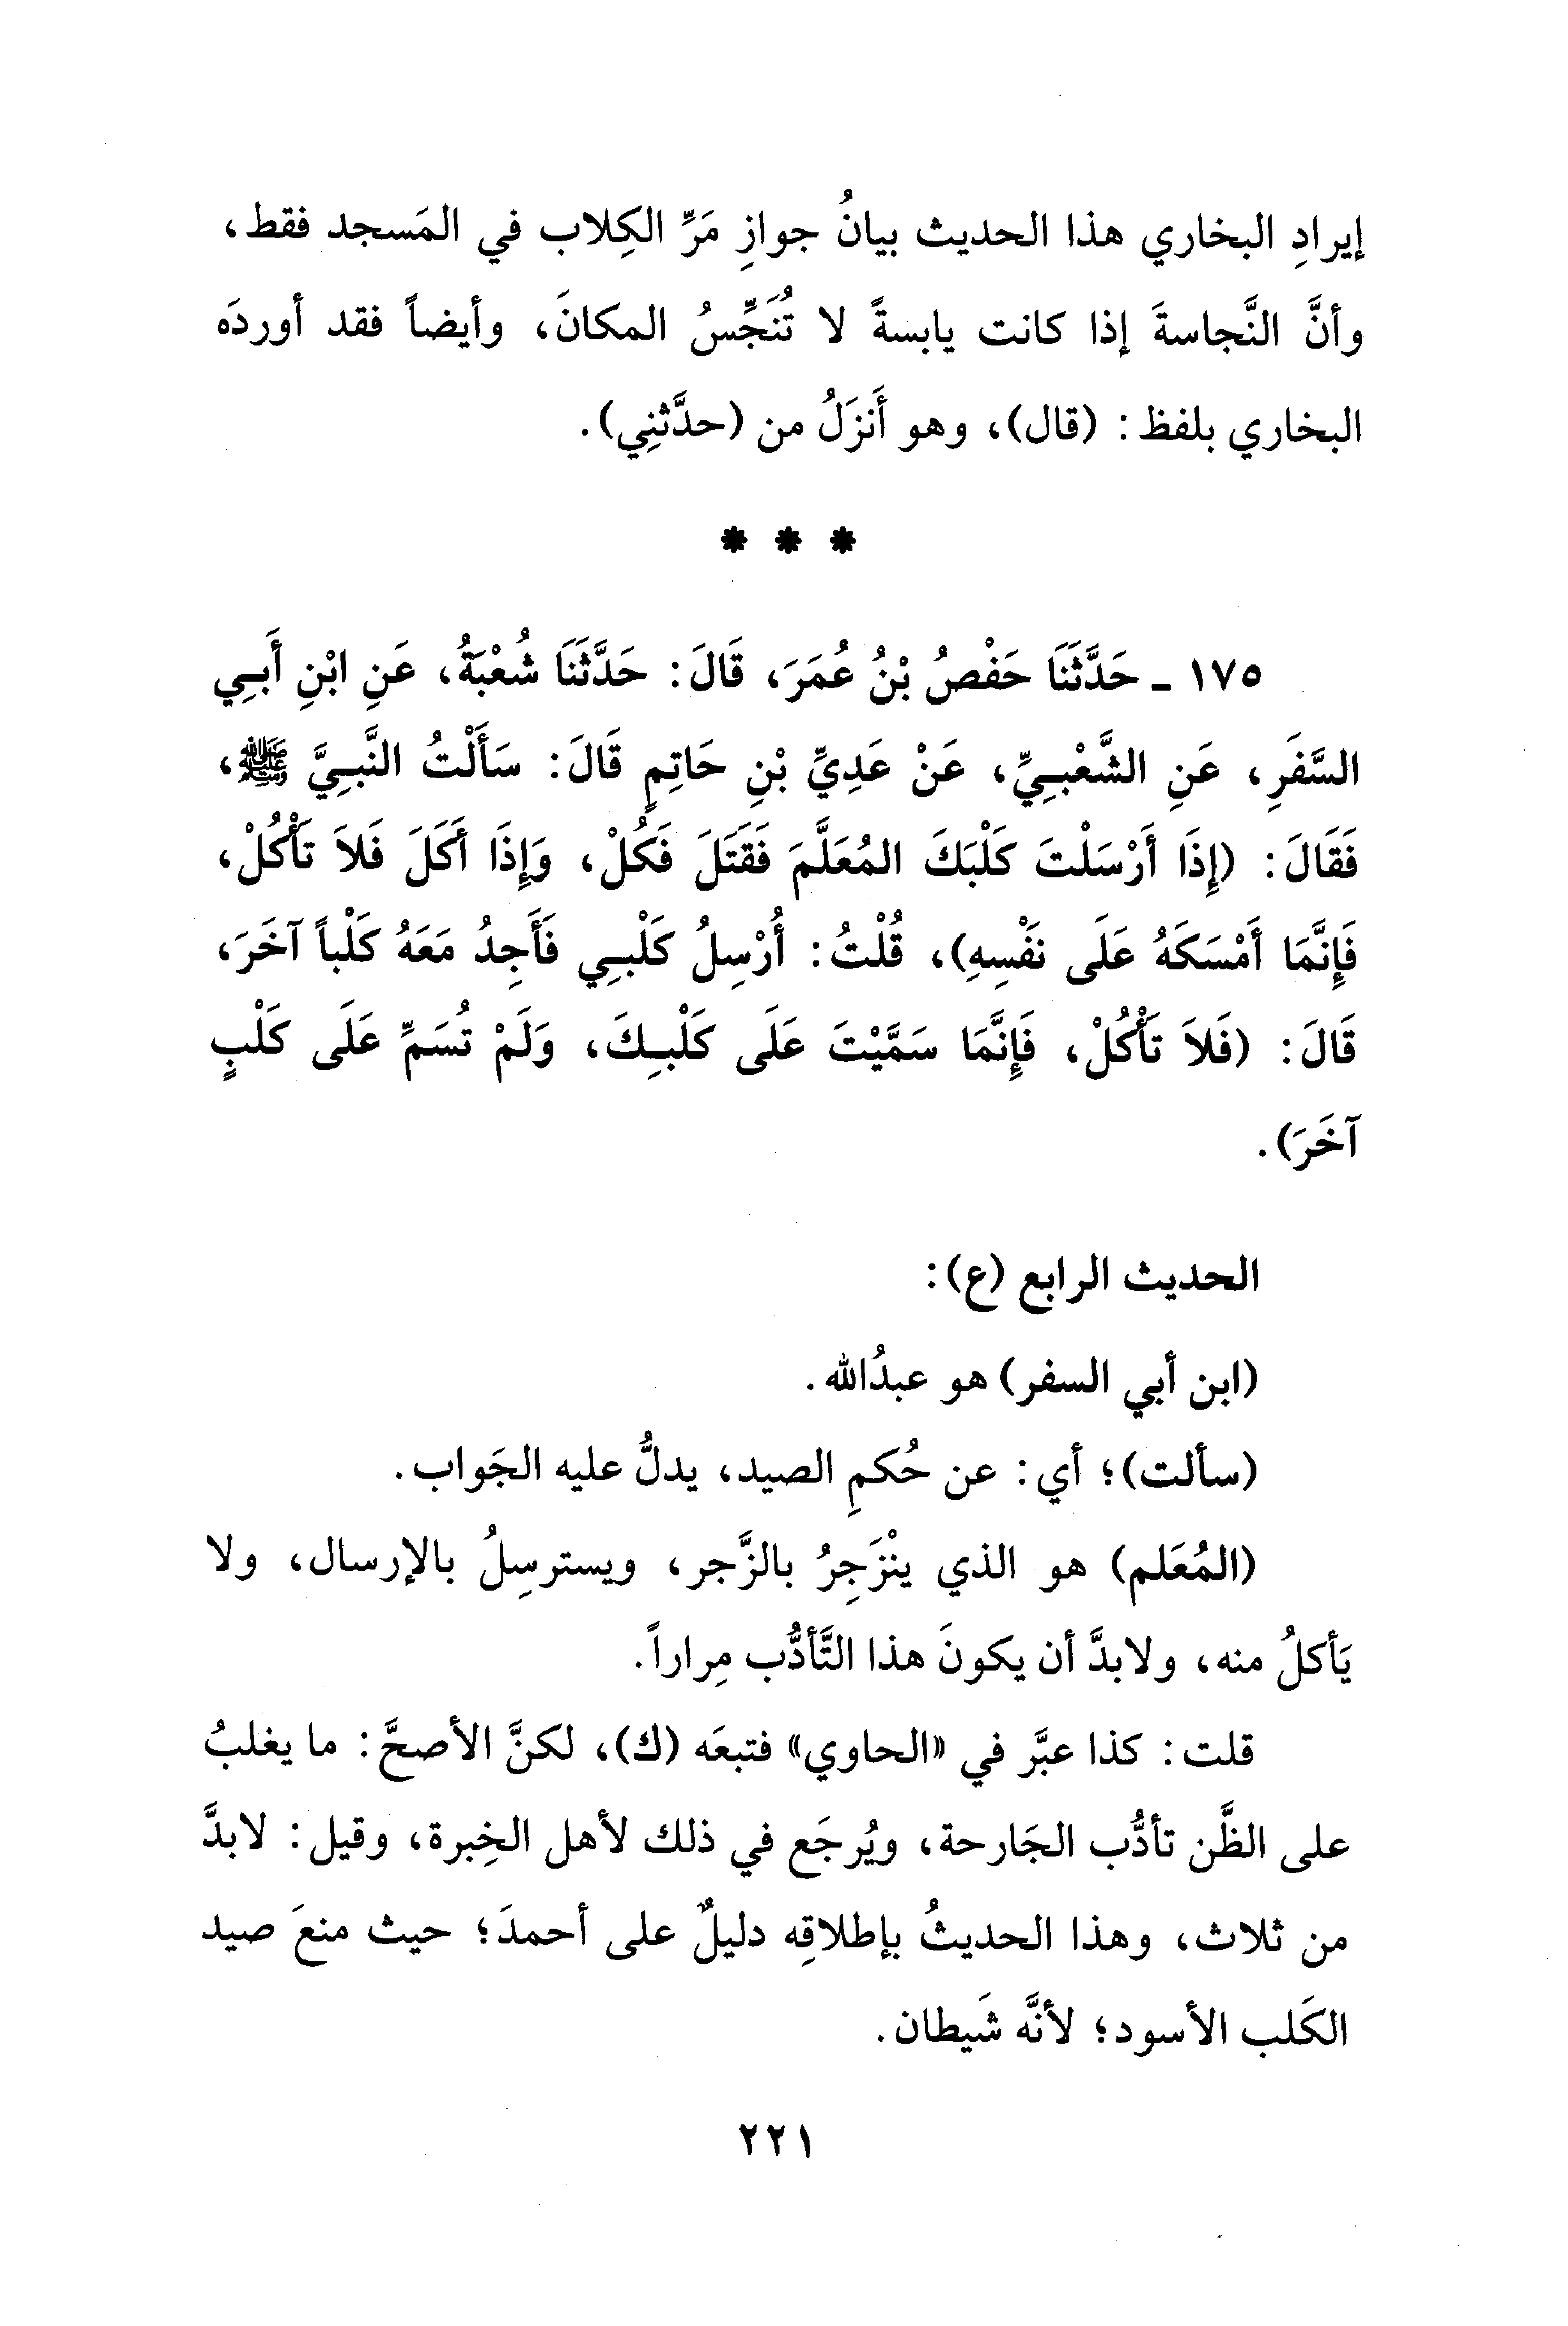 إيرادِ البخاري هذا الحديث بيانُ جوازِ مَرِّ الكِلاب في المَسجد فقط،
وأنَّ النَّجاسةَ إذا كانت يابسةً لا تُنَجِّسُ المكانَ، وأيضاً فقد أوردَه
البخاري بلفظ: (قال)، وهو أَنزَلُ من (حدَّثنِي).
* * *
١٧٥ - حَدَّثَنَا حَفْصُ بْنُ عُمَرَ، قَالَ: حَدَّثَنَا شُعْبَةُ، عَنِ ابْنِ أَبِي
السَّفَرِ، عَنِ الشَّعْبِيِّ، عَنْ عَدِيِّ بْنِ حَاتِمٍ قَالَ: سَأَلْتُ النَّبِيَّ ﷺ،
فَقَالَ: (إِذَا أَرْسَلْتَ كَلْبَكَ المُعَلَّمَ فَقَتَلَ فَكُلْ، وَإِذَا أَكَلَ فَلاَ تَأْكُلْ،
فَإِنَّمَا أَمْسَكَهُ عَلَى نفْسِهِ)، قُلْتُ: أُرْسِلُ كَلْبِي فَأَجِدُ مَعَهُ كَلْباً آخَرَ،
قَالَ: (فَلاَ تَأْكُلْ، فَإِنَّمَا سَمَّيْتَ عَلَى كَلْبِكَ، وَلَمْ تُسَمِّ عَلَى كَلْبٍ
آخَرَ).
الحديث الرابع (ع):
(ابن أبي السفر) هو عبدُالله.
(سألت)؛ أي: عن حُكمِ الصيد، يدلُّ عليه الجَواب.
(المُعَلم) هو الذي ينْزَجِرُ بالزَّجر، ويسترسِلُ بالإرسال، ولا
يَأكلُ منه، ولابدَّ أن يكونَ هذا التَّأدُّب مِراراً.
قلت: كذا عبَّر في «الحاوي» فتبعَه (ك)، لكنَّ الأصحَّ: ما يغلبُ
على الظَّن تأدُّب الجَارحة، ويُرجَع في ذلك لأهل الخِبرة، وقيل: لابدَّ
من ثلاث، وهذا الحديثُ بإطلاقِه دليلٌ على أحمدَ؛ حيث منعَ صيد
الكَلب الأسود؛ لأنَّه شَيطان.
٢٢١